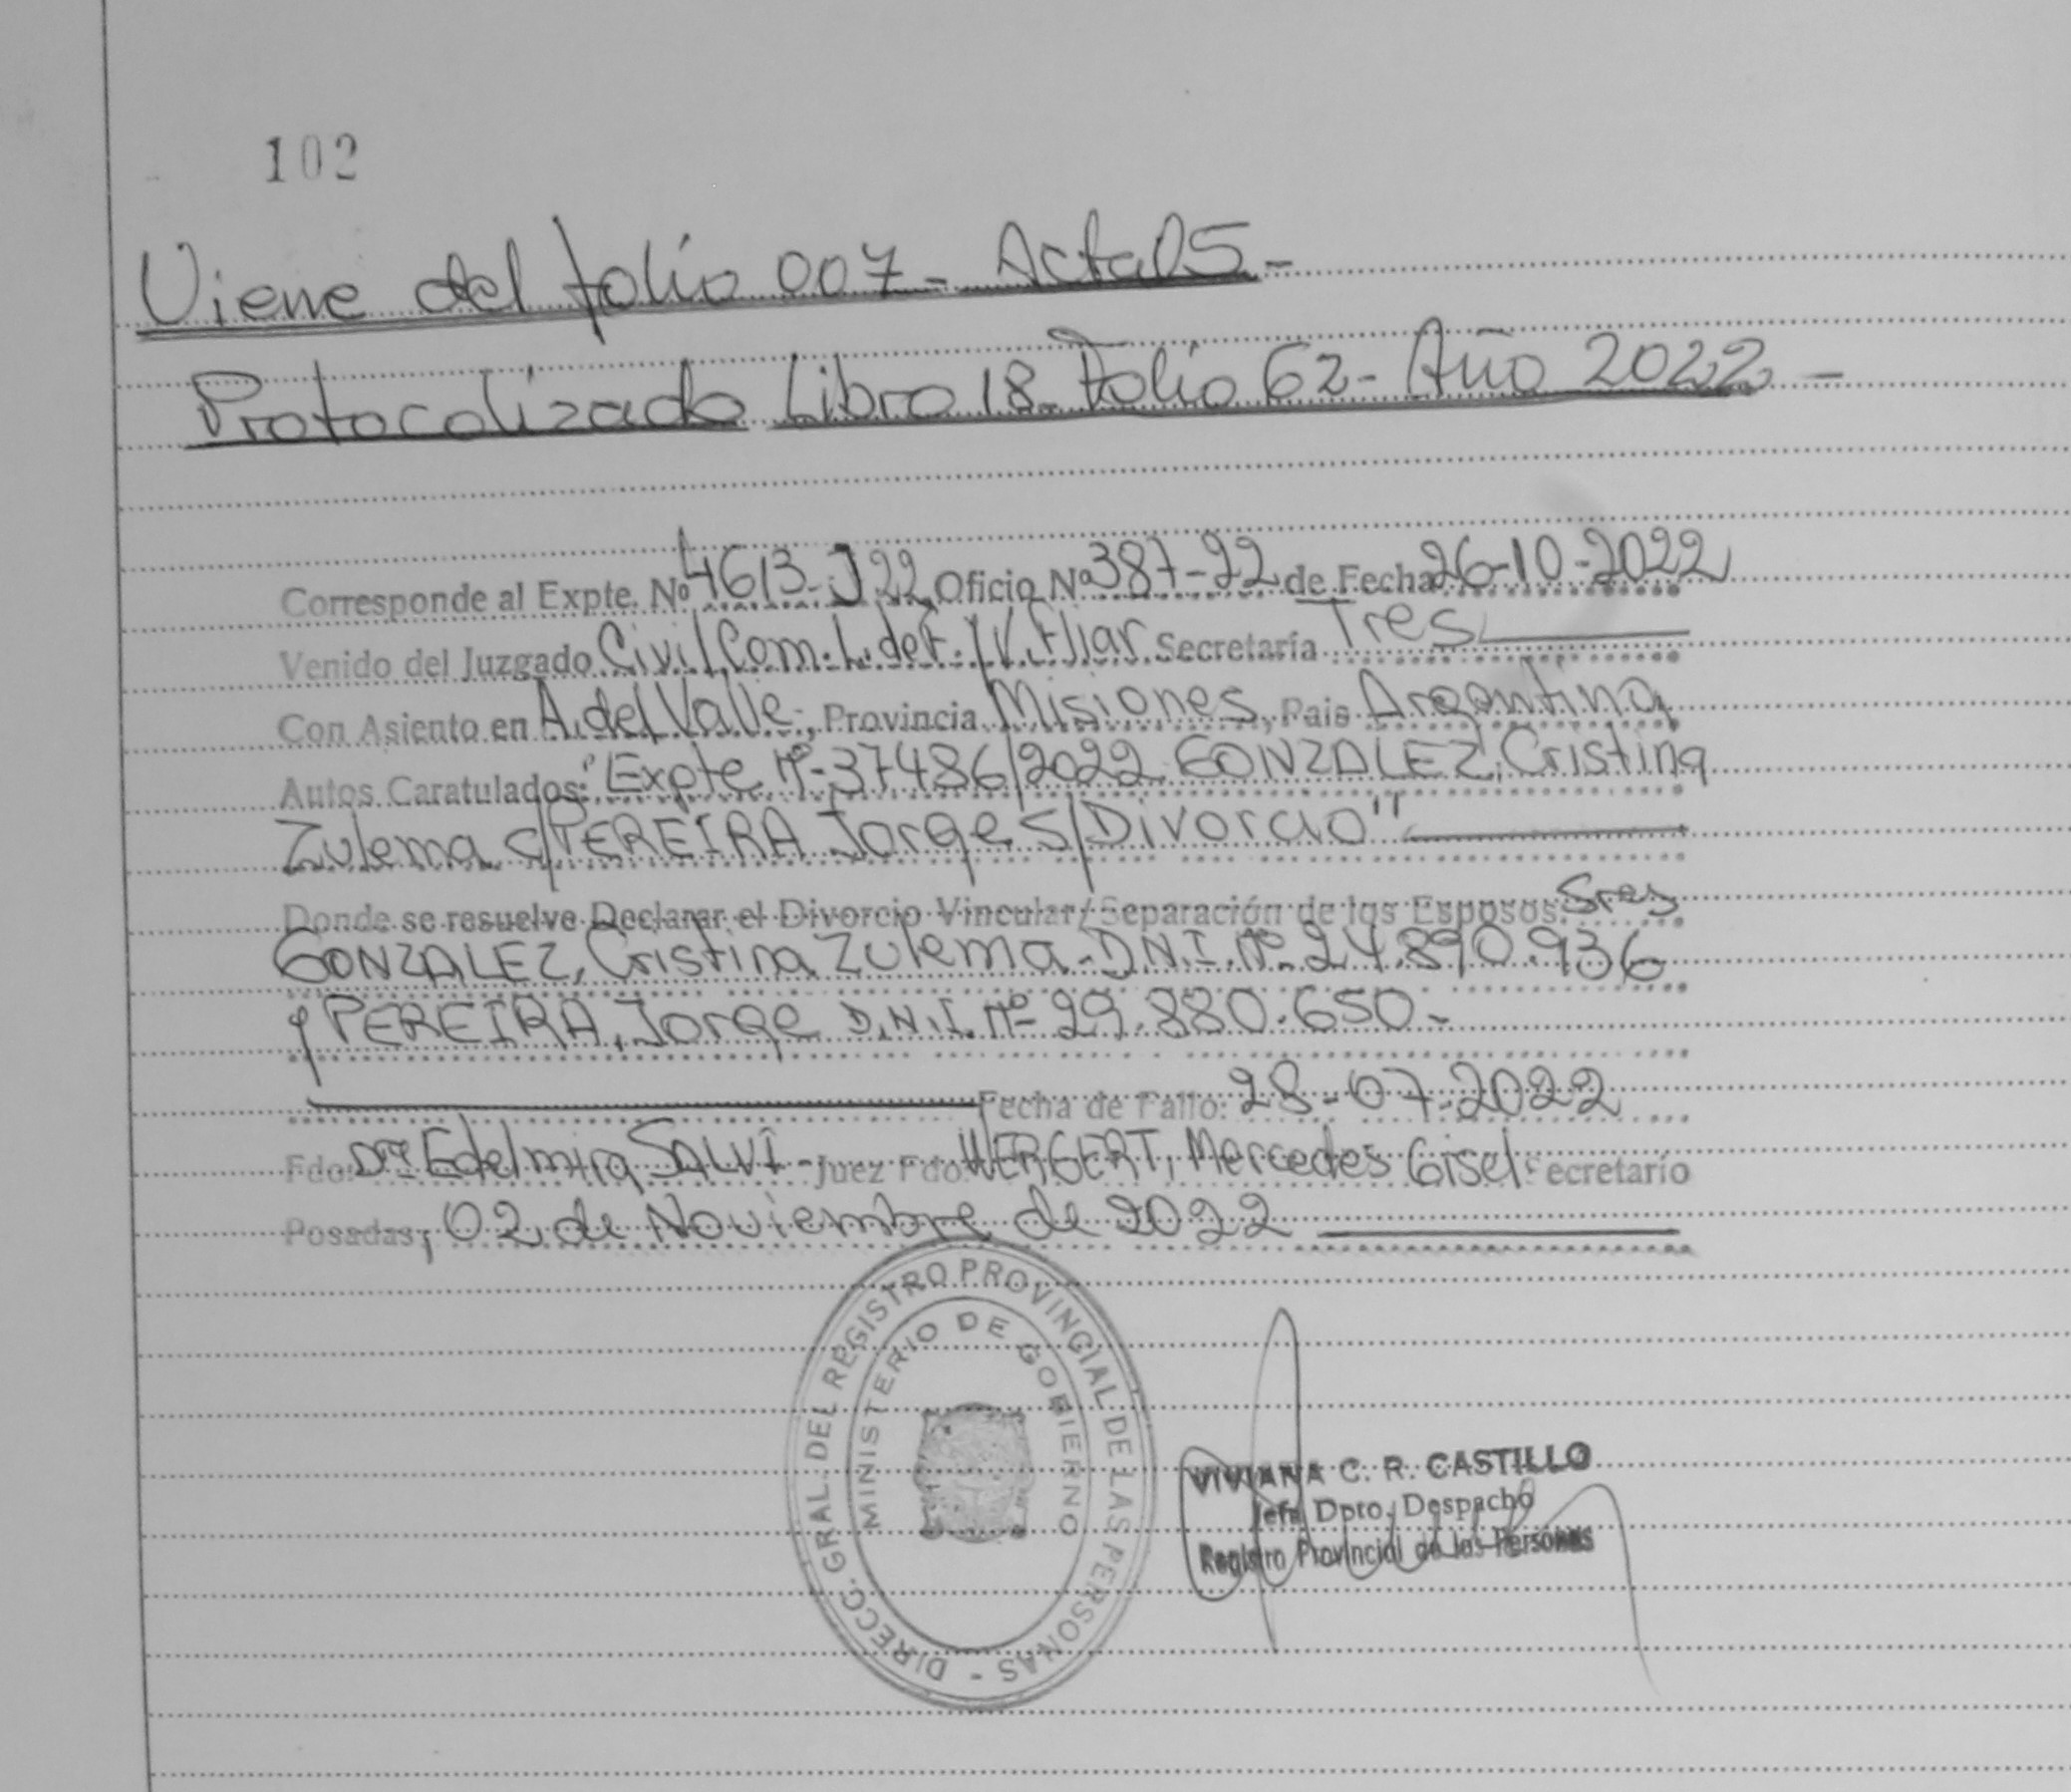 102
Viene del folio 007- Acta 05-
Protocolizado Libro 18- Folio 62- Año 2022-
Corresponde al Expte. Nº 4613-J 22, Oficio Nº 387-22 de Fecha 26-10-2022
Venido del Juzgado Civil, Com. L. de F. y V. Fliar Secretaría Tres
Con Asiento en A. del Valle, Provincia Misiones, Pais Argentina
Autos Caratulados: "Expte Nº-37486/2022 GONZALEZ, Cristina
Zulema c/PEREIRA Jorge s/Divorcio"
Donde se resuelve Declarar el Divorcio Vincular/Separación de los Esposos: Sres
GONZALEZ, Cristina Zulema- D.N.I. Nº- 24.890.936
y PEREIRA, Jorge D.N.I. Nº- 29.880.650-
Fecha de Fallo: 28-07-2022
Fdo: Dra Edelmira SALVI - Juez Fdo: WERGERT, Mercedes Gisel Secretario
Posadas, 02 de Noviembre de 2022
DIRECC. GRAL. DEL REGISTRO PROVINCIAL DE LAS PERSONAS -
MINISTERIO DE GOBIERNO
VIVIANA C. R. CASTILLO
Jefa Dpto. Despacho
Registro Provincial de las Personas